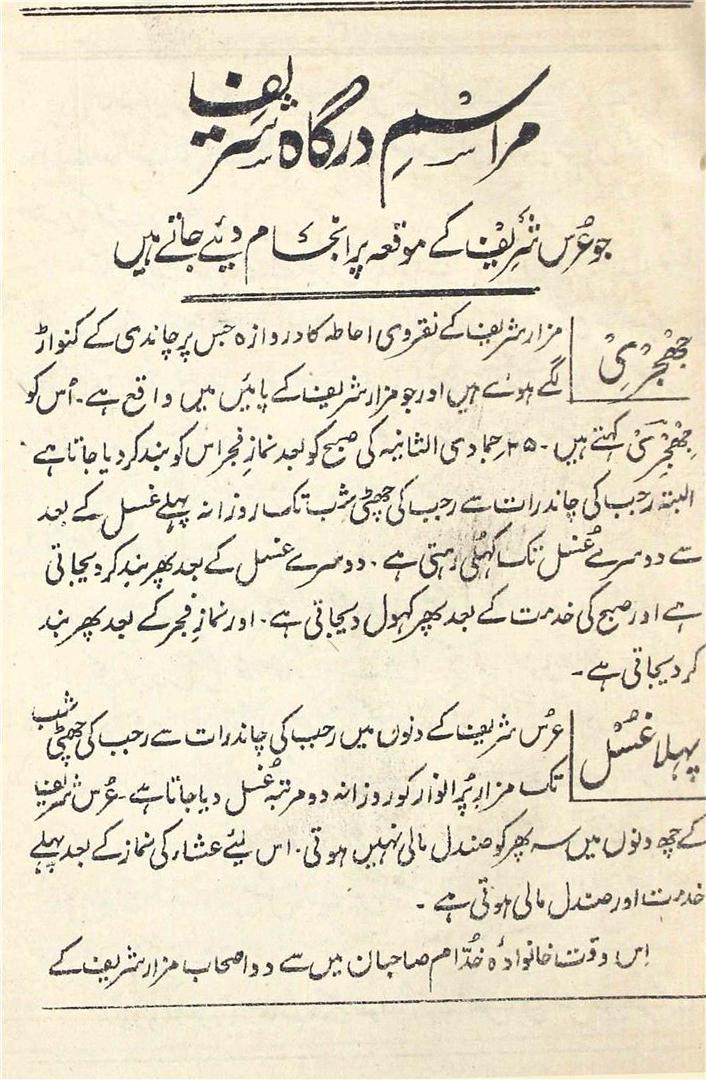 مراسمِ درگاہ شریف
جو عُرس شریف کے موقعہ پر انجام دیئے جاتے ہیں
جھجری
مزار شریف کے نقروی احاطہ کا دروازہ جس پر چاندی کے کنواڑ
لگے ہوئے ہیں اور جو مزار شریف کے پائیں میں واقع ہے۔ اُس کو
جھجری کہتے ہیں۔ ۲۵ جمادی الثانیہ کی صبح کو بعد نمازِ فجر اس کو بند کر دیا جاتا ہے
البتہ رجب کی چاند رات سے رجب کی چھٹی شب تک روزانہ پہلے غسل کے بعد
سے دوسرے غُسل تک کھُلی رہتی ہے۔ دوسرے غسل کے بعد پھر بند کر دیجاتی
ہے اور صبح کی خدمت کے بعد پھر کہول دیجاتی ہے۔ اور نمازِ فجر کے بعد پھر بند
کر دیجاتی ہے۔
پہلا غُسل
عرس شریف کے دنوں میں رجب کی چاند رات سے رجب کی چھٹی شب
تک مزارِ پُر انوار کو روزانہ دو مرتبہ غُسل دیا جاتا ہے۔ عُرس شریف
کے چھ دنوں میں سہ پھر کو صندل مالی نہیں ہوتی۔ اس لیئے عشاء کی نماز کے بعد پہلے
خدمت اور صندل مالی ہوتی ہے۔
اِس وقت خانوادۂ خُدّام صاحبان میں سے دو اصحاب مزار شریف کے